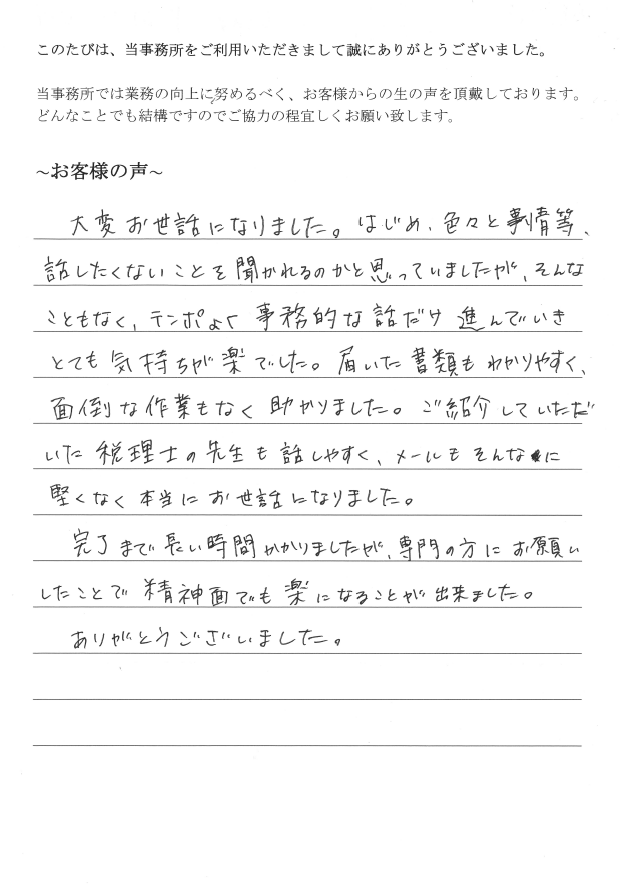 このたびは、当事務所をご利用いただきまして誠にありがとうございました。
当事務所では業務の向上に努めるべく、お客様からの生の声を頂戴しております。
どんなことでも結構ですのでご協力の程宜しくお願い致します。
~お客様の声~
大変お世話になりました。はじめ、色々と事情等、
話したくないことを聞かれるのかと思っていましたが、そんな
こともなく、テンポよく事務的な話だけ進んでいき
とても気持ちが楽でした。届いた書類もわかりやすく、
面倒な作業もなく助かりました。ご紹介していただ
いた税理士の先生も話しやすく、メールもそんなに
堅くなく本当にお世話になりました。
完了まで長い時間かかりましたが、専門の方にお願い
したことで精神面でも楽になることが出来ました。
ありがとうございました。